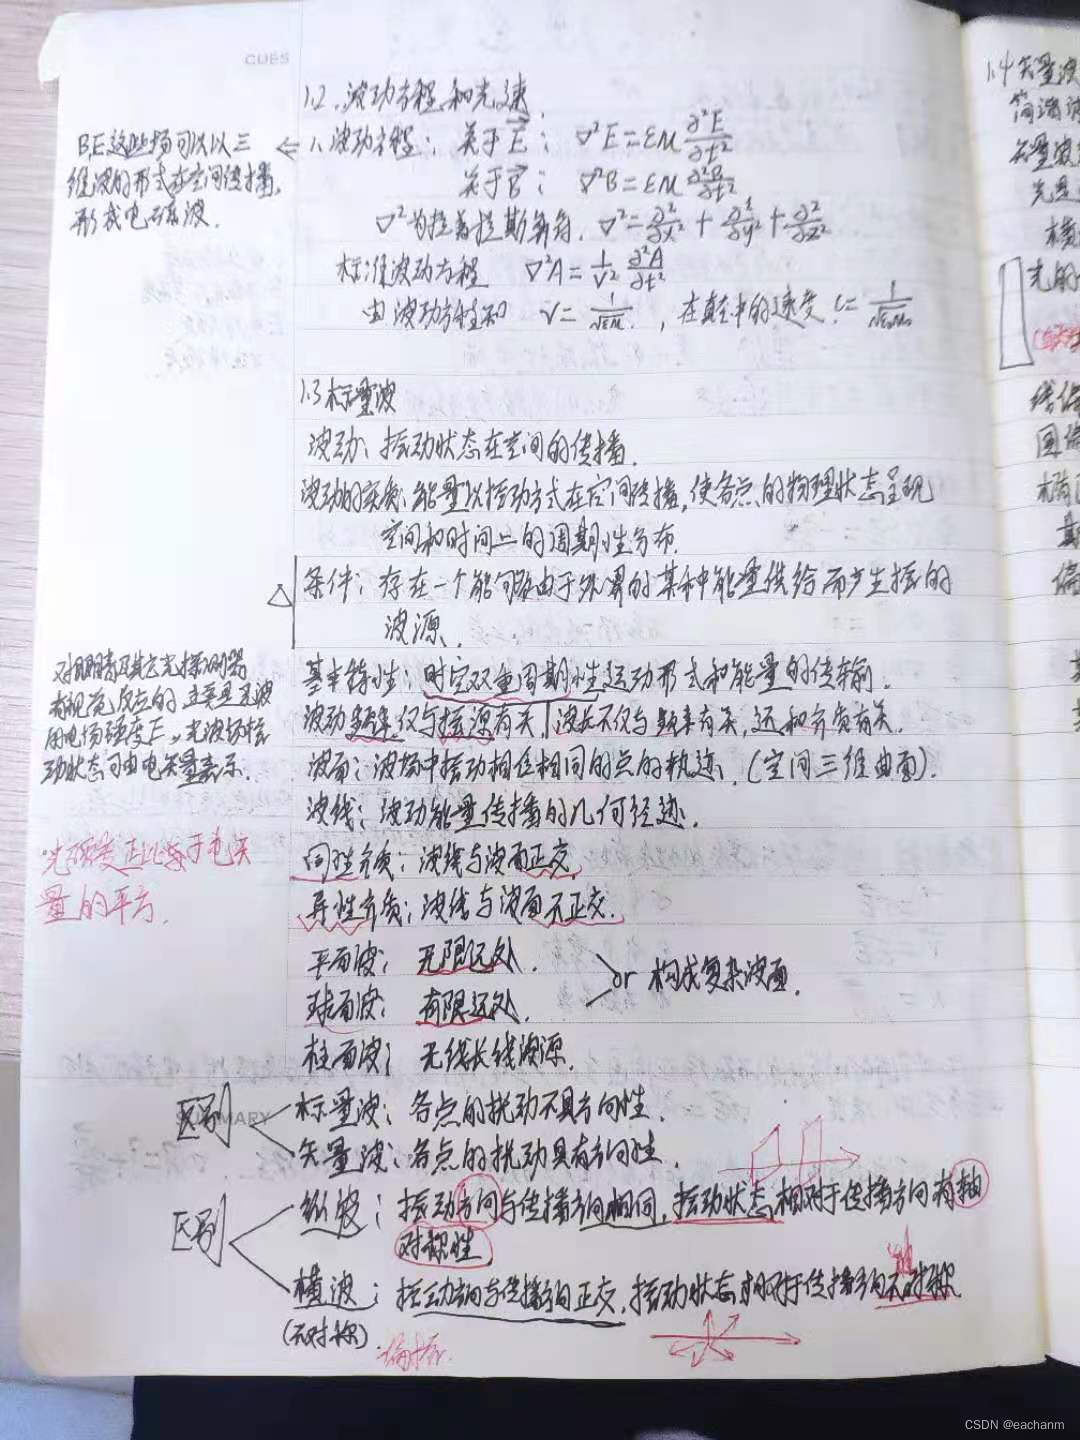 CUES
1.2、波动方程和光速
B,E这些场可以以三
维波的形式在空间传播,
形成电磁波.
← 1、波动方程: 关于E: ∇²E=εμ ∂²E/∂t²
关于B: ∇²B=εμ ∂²B/∂t²
∇²为拉普拉斯算符. ∇²=∂²/∂x² + ∂²/∂y² + ∂²/∂z²
标准波动方程 ∇²A = 1/v² ∂²A/∂t²
由波动方程知 v= 1/√εμ , 在真空中的速度 c= 1/√ε₀μ₀
1.3 标量波
波动: 振动状态在空间的传播.
波动的实质: 能量以振动方式在空间传播, 使各点的物理状态呈现
空间和时间上的周期性分布.
△ 条件: 存在一个能够由于外界的某种能量供给而产生振的
波源.
基本特性: 时空双重周期性运动形式和能量的传输.
波动频率仅与振源有关, 波长不仅与频率有关, 还和介质有关.
波面: 波场中振动相位相同的点的轨迹. (空间三维曲面).
波线: 波动能量传播的几何径迹.
对眼睛及其它光探测器
有视觉反应的主要是光波
用电场强度E,光波场振
动状态可由电矢量表示.
光强度正比于电矢
量的平方.
同性介质: 波线与波面正交.
异性介质: 波线与波面不正交.
平面波: 无限远处.
球面波: 有限远处.
or 构成复杂波面.
柱面波: 无线长线波源.
SUMMARY
区别
标量波: 各点的扰动不具方向性.
矢量波: 各点的扰动具有方向性.
区别
纵波: 振动方向与传播方向相同, 振动状态相对于传播方向有轴
对称性.
横波: 振动方向与传播方向正交, 振动状态相对于传播方向不对称
(不对称) 偏振.
1.4 矢量波
简谐波
矢量波
横
光的
偏
CSDN @eachanm